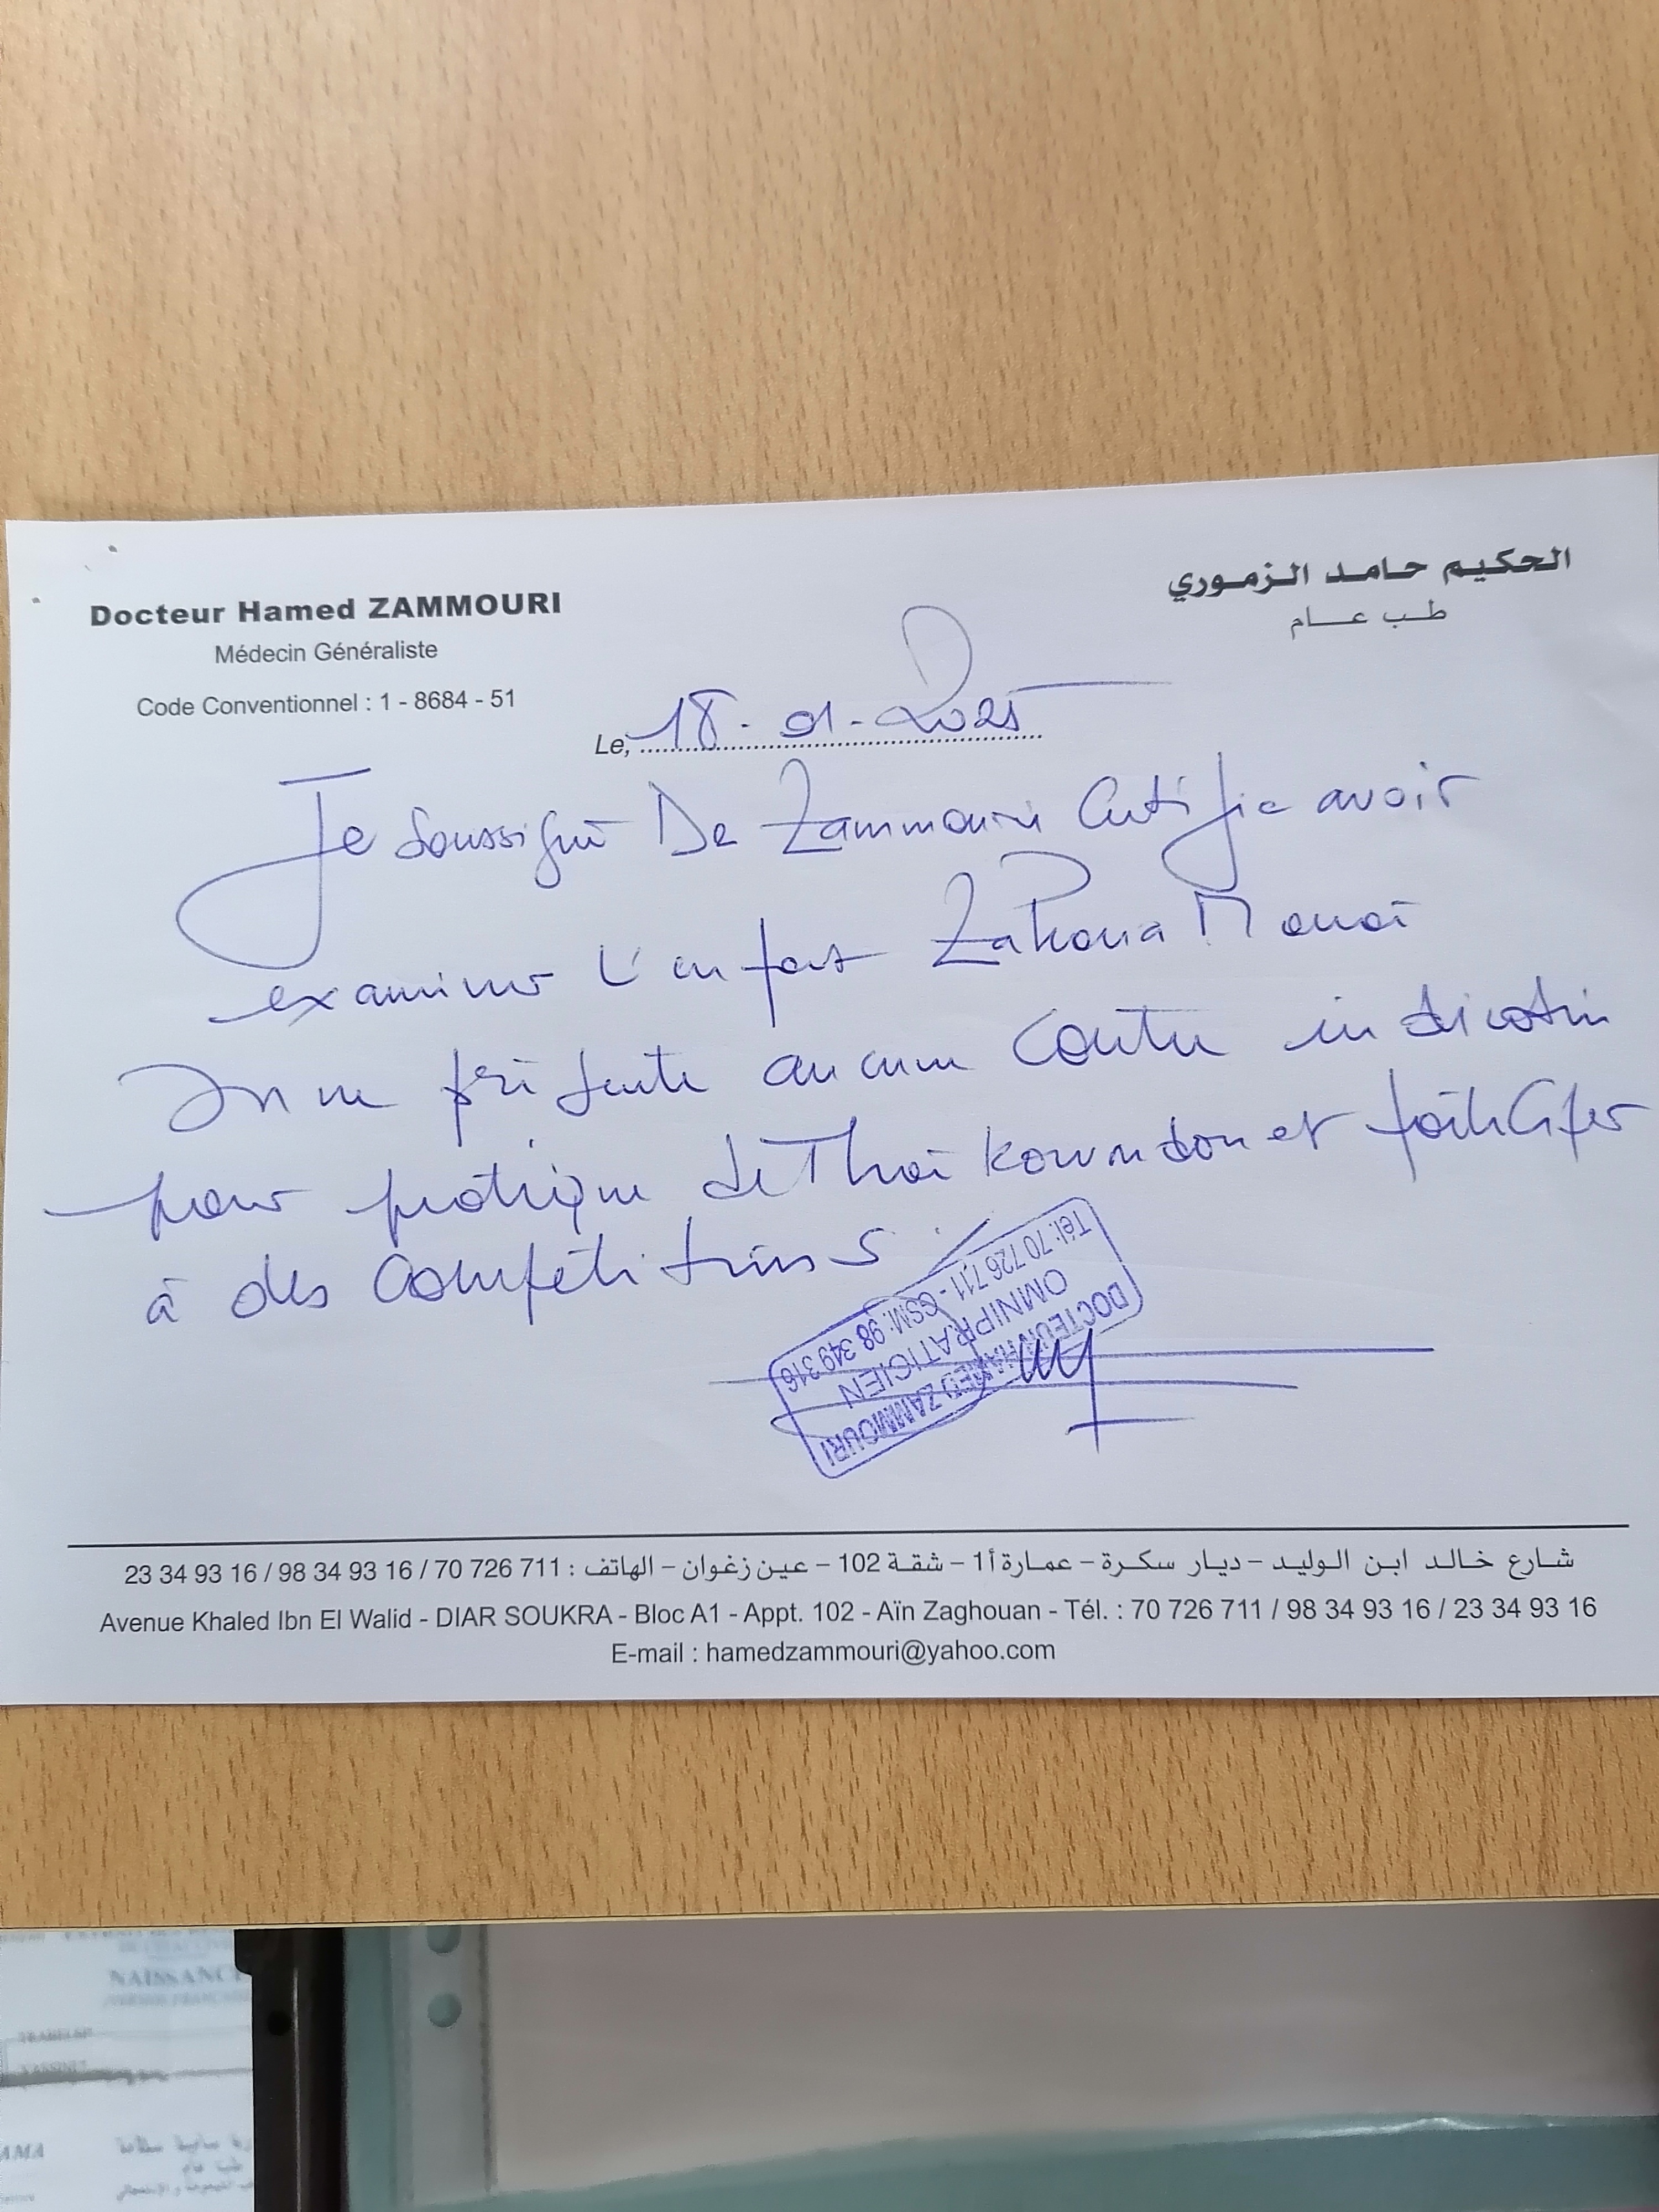 Docteur Hamed ZAMMOURI
Médecin Généraliste
Code Conventionnel : 1 - 8684 - 51
الحكيم حامد الزموري
طب عام
Le, 18-01-2025
Je soussigné Dr Zammouri Certifie avoir
examiner l'enfant Zakaria
ne présente aucune contre indication
pour pratique de Thaï kowndon et participer
à des compétitions.
DOCTEUR HAMED ZAMMOURI
OMNIPRATICIEN
Tél: 70 726 711 - GSM: 98 349 316
شارع خالد ابن الوليد - ديار سكرة - عمارة أ1 - شقة 102 - عين زغوان - الهاتف : 711 726 70 / 16 93 34 98 / 16 93 34 23
Avenue Khaled Ibn El Walid - DIAR SOUKRA - Bloc A1 - Appt. 102 - Aïn Zaghouan - Tél. : 70 726 711 / 98 34 93 16 / 23 34 93 16
E-mail : hamedzammouri@yahoo.com
NAISSANCE
TRABELSI
YASSINE
AMA
طب عام